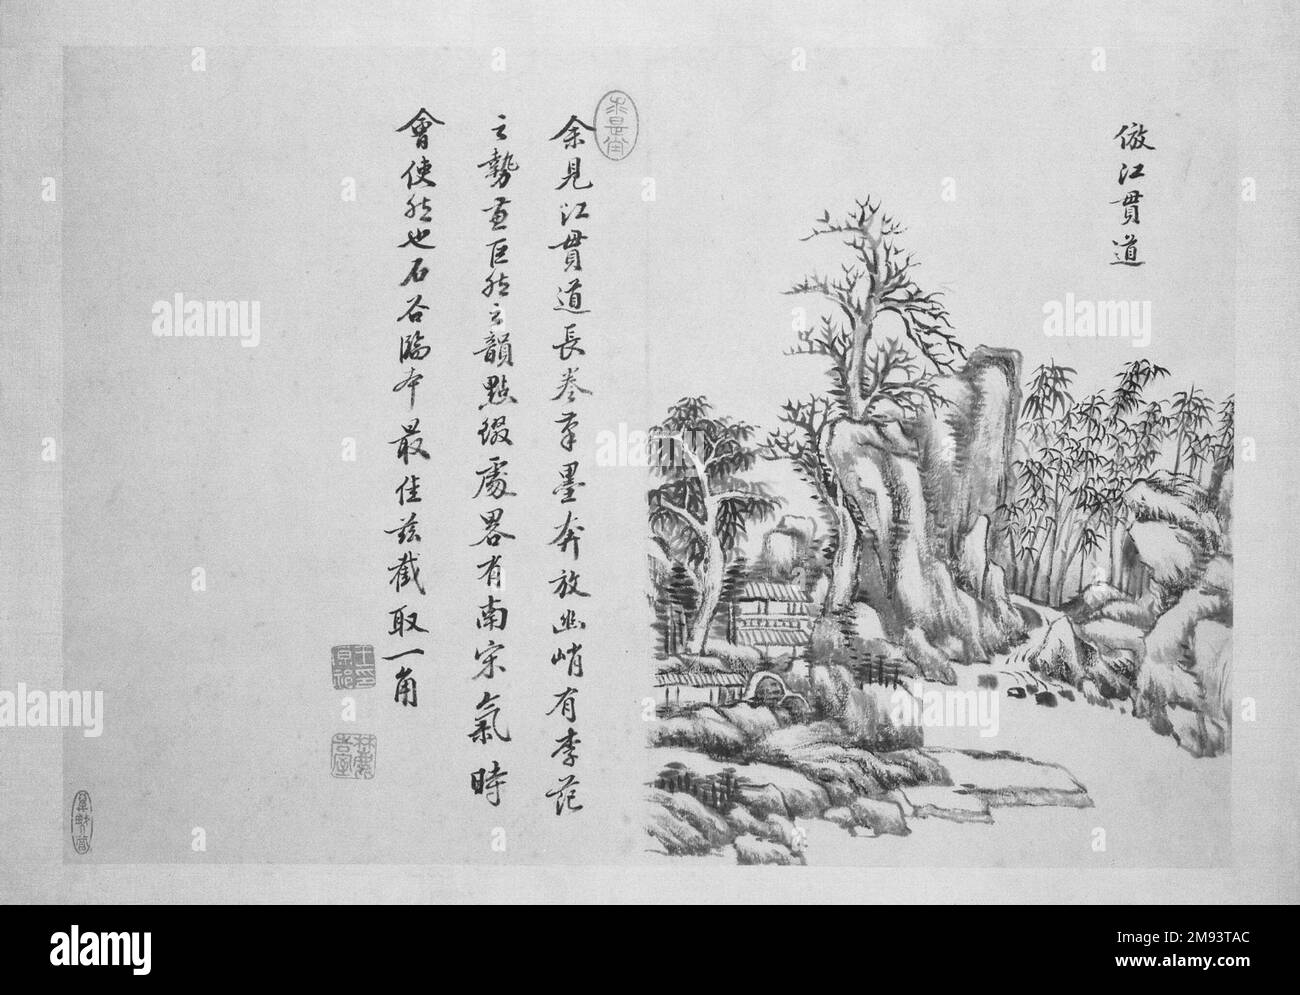 倣江貫道
余見江貫道長卷筆墨奔放幽峭有李范
之勢兼巨然之韻點綴處畧有南宋氣時
會使然也石谷臨本最佳茲截取一角
alamy
Image ID: 2M93TAC
www.alamy.com